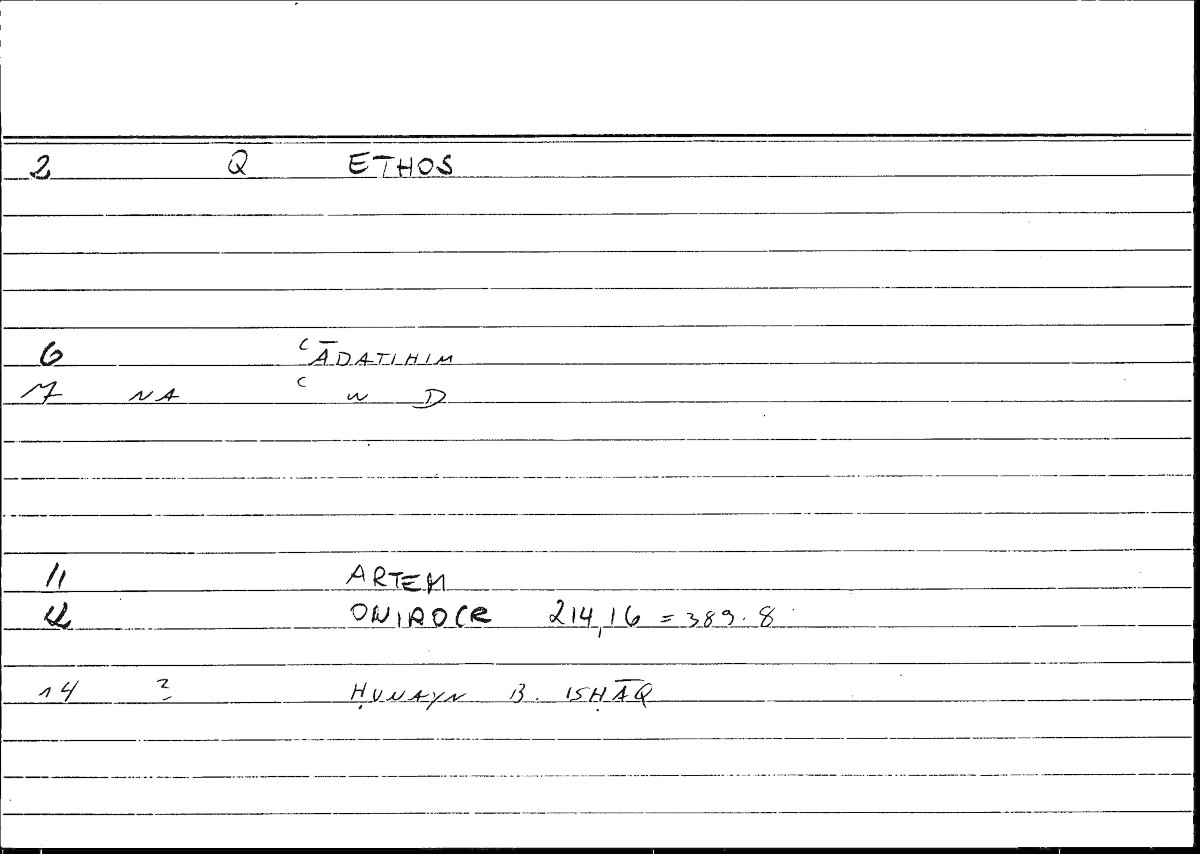 2 Q ETHOS
6 ʿĀDATIHIM
7 NA ʿ W D
11 ARTEM
12 ONIROCR 214,16 = 389.8
14 2 ḤUNAYN B. ISḤĀQ